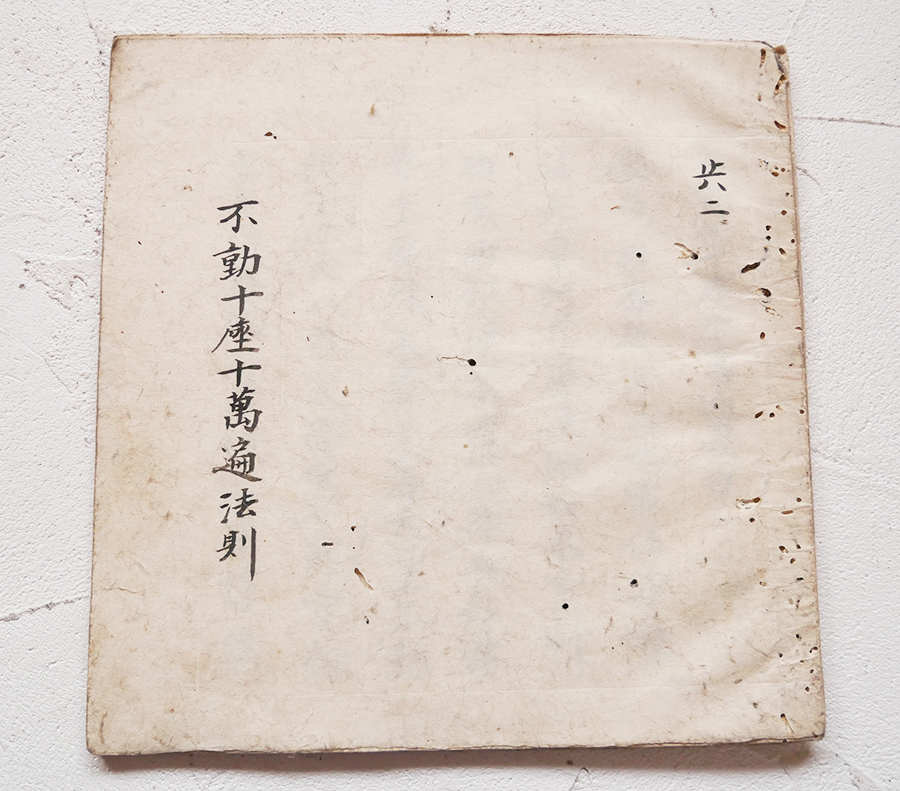 二
不動十座十萬遍法則